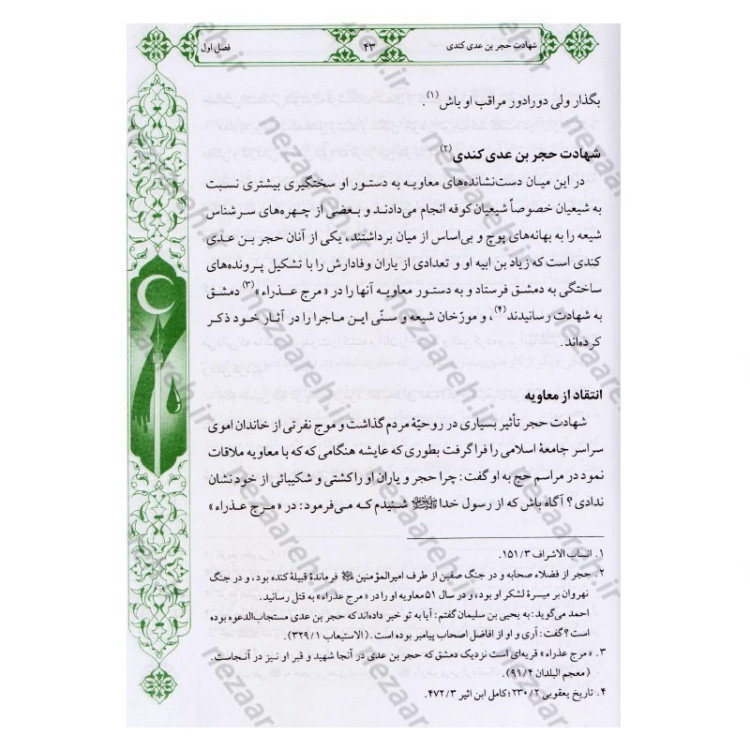 شهادت حجر بن عدی کندی ۴۳ فصل اول
بگذار ولی دورادور مراقب او باش(۱).
شهادت حجر بن عدی کندی(۲)
در این میان دست‌نشانده‌های معاویه به دستور او سختگیری بیشتری نسبت
به شیعیان خصوصاً شیعیان کوفه انجام می‌دادند و بعضی از چهره‌های سرشناس
شیعه را به بهانه‌های پوچ و بی‌اساس از میان برداشتند، یکی از آنان حجر بن عدی
کندی است که زیاد بن ابیه او و تعدادی از یاران وفادارش را با تشکیل پرونده‌های
ساختگی به دمشق فرستاد و به دستور معاویه آنها را در «مرج عذراء»(۳) دمشق
به شهادت رسانیدند(۴)، و مورّخان شیعه و سنّی این ماجرا را در آثار خود ذکر
کرده‌اند.
انتقاد از معاویه
شهادت حجر تأثیر بسیاری در روحیّه مردم گذاشت و موج نفرتی از خاندان اموی
سراسر جامعهٔ اسلامی را فرا گرفت بطوری که عایشه هنگامی که که با معاویه ملاقات
نمود در مراسم حج به او گفت: چرا حجر و یاران او را کشتی و شکیبائی از خود نشان
ندادی؟ آگاه باش که از رسول خدا ﷺ شنیدم که می‌فرمود: در «مرج عذراء»
۱. انساب الاشراف ۱۵۱/۳.
۲. حجر از فضلاء صحابه و در جنگ صفین از طرف امیرالمؤمنین فرماندهٔ قبیلهٔ کنده بود، و در جنگ
نهروان بر میسرهٔ لشکر او بود، و در سال ۵۱ معاویه او را در «مرج عذراء» به قتل رسانید.
احمد می‌گوید: به یحیی بن سلیمان گفتم: آیا به تو خبر داده‌اند که حجر بن عدی مستجاب‌الدعوه بوده
است؟ گفت: آری و او از افاضل اصحاب پیامبر بوده است. (الاستیعاب ۳۲۹/۱).
۳. «مرج عذراء» قریه‌ای است نزدیک دمشق که حجر بن عدی در آنجا شهید و قبر او نیز در آنجاست.
(معجم البلدان ۹۱/۴).
۴. تاریخ یعقوبی ۲۳۰/۲؛ کامل ابن اثیر ۴۷۲/۳.
nezaareh.ir